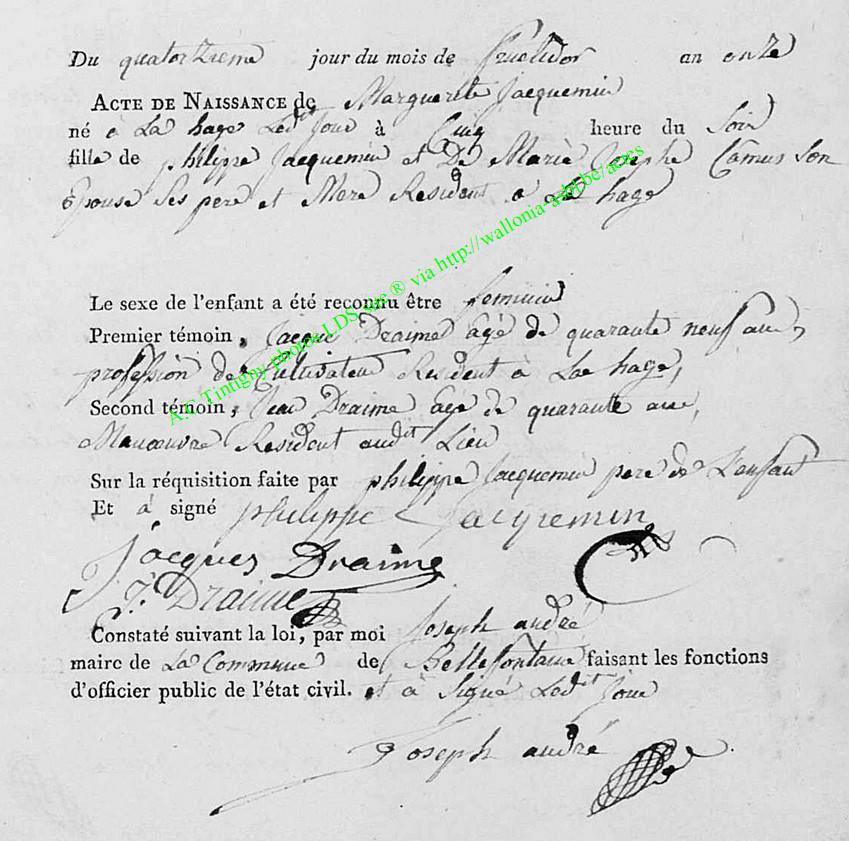 Du quatorzieme jour du mois de fructidor an onze
ACTE DE NAISSANCE de Marguerite Jacquemin
né à La hage Ledit Jour à Cinq heure du Soir
fille de philippe Jacquemin et De Marie Josephe Camus Son
Epouse Ses pere et Mere Resident a La hage
Le sexe de l'enfant a été reconnu être feminin
Premier témoin, Jacque Draime âgé de quarante neuf ans,
profession de Cultivateur Resident à La hage,
Second témoin, Jean Draime âgé de quarante ans,
Manoeuvre Resident audit Lieu
Sur la réquisition faite par philippe Jacquemin pere de L'enfant
Et à signé philippe Jacqremin
Jacques Draime
J: Draime
Constaté suivant la loi, par moi Joseph andré
maire de La Commune de Bellefontaine faisant les fonctions
d'officier public de l'état civil. et à Signé Ledit Jour
Joseph andré
A.C Tintigny photos LDS src ® via http://wallonia-asbl.be/actes